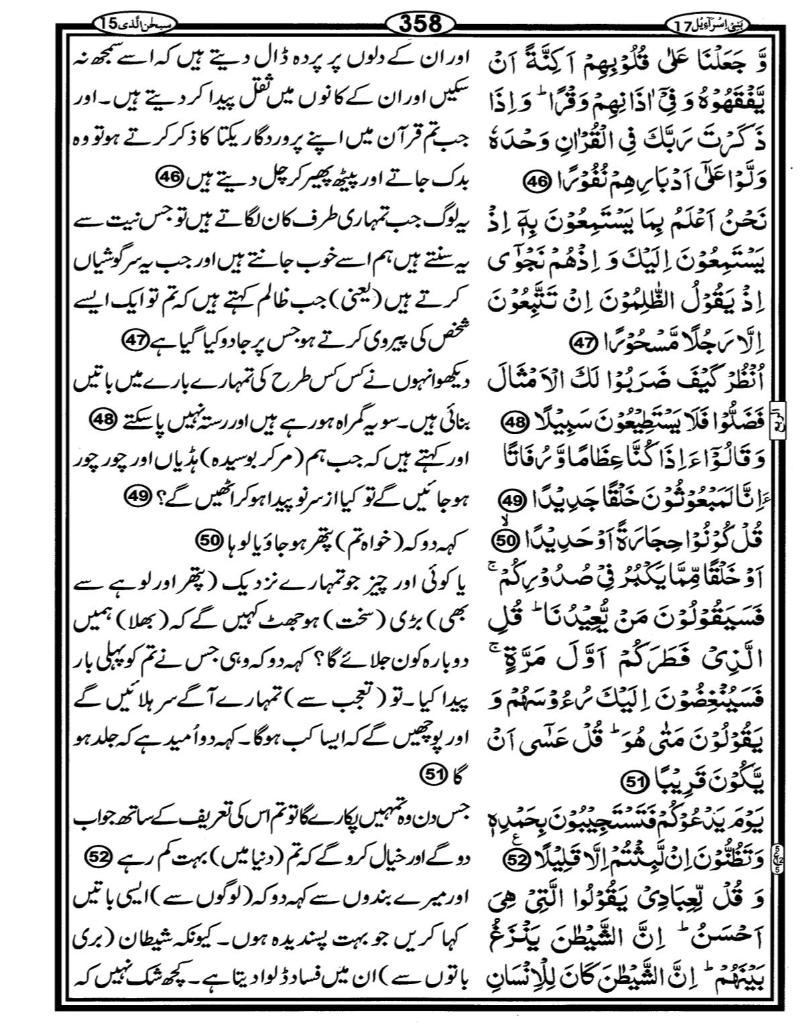 بَنِیْٓ اِسْرَآءِیْل 17
358
سبحٰن الّذی 15
وَّ جَعَلْنَا عَلٰى قُلُوْبِهِمْ اَكِنَّةً اَنْ
يَّفْقَهُوْهُ وَ فِيْٓ اٰذَانِهِمْ وَقْرًا ؕ وَ اِذَا
ذَكَرْتَ رَبَّكَ فِي الْقُرْاٰنِ وَحْدَهٗ
وَلَّوْا عَلٰٓى اَدْبَارِهِمْ نُفُوْرًا 46
نَحْنُ اَعْلَمُ بِمَا يَسْتَمِعُوْنَ بِهٖٓ اِذْ
يَسْتَمِعُوْنَ اِلَيْكَ وَ اِذْ هُمْ نَجْوٰٓى
اِذْ يَقُوْلُ الظّٰلِمُوْنَ اِنْ تَتَّبِعُوْنَ
اِلَّا رَجُلًا مَّسْحُوْرًا 47
اُنْظُرْ كَيْفَ ضَرَبُوْا لَكَ الْاَمْثَالَ
فَضَلُّوْا فَلَا يَسْتَطِيْعُوْنَ سَبِيْلًا 48
وَ قَالُوْٓا ءَاِذَا كُنَّا عِظَامًا وَّ رُفَاتًا
ءَاِنَّا لَمَبْعُوْثُوْنَ خَلْقًا جَدِيْدًا 49
قُلْ كُوْنُوْا حِجَارَةً اَوْ حَدِيْدًا ۙ 50
اَوْ خَلْقًا مِّمَّا يَكْبُرُ فِيْ صُدُوْرِكُمْ ۚ
فَسَيَقُوْلُوْنَ مَنْ يُّعِيْدُنَا ؕ قُلِ
الَّذِيْ فَطَرَكُمْ اَوَّلَ مَرَّةٍ ۚ
فَسَيُنْغِضُوْنَ اِلَيْكَ رُءُوْسَهُمْ وَ
يَقُوْلُوْنَ مَتٰى هُوَ ؕ قُلْ عَسٰٓى اَنْ
يَّكُوْنَ قَرِيْبًا 51
يَوْمَ يَدْعُوْكُمْ فَتَسْتَجِيْبُوْنَ بِحَمْدِهٖ
وَ تَظُنُّوْنَ اِنْ لَّبِثْتُمْ اِلَّا قَلِيْلًا 52
وَ قُلْ لِّعِبَادِيْ يَقُوْلُوا الَّتِيْ هِيَ
اَحْسَنُ ؕ اِنَّ الشَّيْطٰنَ يَنْزَغُ
بَيْنَهُمْ ؕ اِنَّ الشَّيْطٰنَ كَانَ لِلْاِنْسَانِ
اور ان کے دلوں پر پردہ ڈال دیتے ہیں کہ اسے سمجھ نہ
سکیں اور ان کے کانوں میں ثقل پیدا کر دیتے ہیں۔ اور
جب تم قرآن میں اپنے پروردگار یکتا کا ذکر کرتے ہو تو وہ
بدک جاتے اور پیٹھ پھیر کر چل دیتے ہیں 46
یہ لوگ جب تمہاری طرف کان لگاتے ہیں تو جس نیت سے
یہ سنتے ہیں ہم اسے خوب جانتے ہیں اور جب یہ سرگوشیاں
کرتے ہیں (یعنی) جب ظالم کہتے ہیں کہ تم تو ایک ایسے
شخص کی پیروی کرتے ہو جس پر جادو کیا گیا ہے 47
دیکھو انہوں نے کس کس طرح کی تمہارے بارے میں باتیں
بنائی ہیں۔ سو یہ گمراہ ہو رہے ہیں اور رستہ نہیں پا سکتے 48
اور کہتے ہیں کہ جب ہم (مر کر بوسیدہ) ہڈیاں اور چور چور
ہو جائیں گے تو کیا از سر نو پیدا ہو کر اٹھیں گے؟ 49
کہہ دو کہ (خواہ تم) پتھر ہو جاؤ یا لوہا 50
یا کوئی اور چیز جو تمہارے نزدیک (پتھر اور لوہے سے
بھی) بڑی (سخت) ہو جھٹ کہیں گے کہ (بھلا) ہمیں
دوبارہ کون جلائے گا؟ کہہ دو کہ وہی جس نے تم کو پہلی بار
پیدا کیا۔ تو (تعجب سے) تمہارے آگے سر ہلائیں گے
اور پوچھیں گے کہ ایسا کب ہوگا۔ کہہ دو اُمید ہے کہ جلد ہو
گا 51
جس دن وہ تمہیں پکارے گا تو تم اس کی تعریف کے ساتھ جواب
دو گے اور خیال کرو گے کہ تم (دنیا میں) بہت کم رہے 52
اور میرے بندوں سے کہہ دو کہ (لوگوں سے) ایسی باتیں
کہا کریں جو بہت پسندیدہ ہوں۔ کیونکہ شیطان (بری
باتوں سے) ان میں فساد ڈلوا دیتا ہے۔ کچھ شک نہیں کہ
الربع